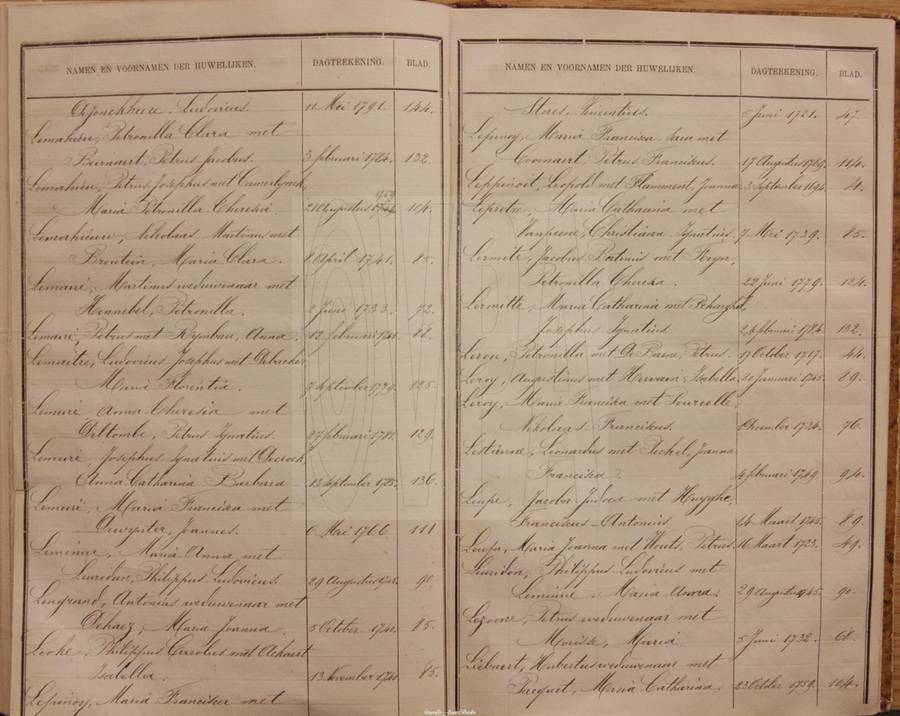 NAMEN EN VOORNAMEN DER HUWELIJKEN. DAGTEEKENING. BLAD.
Dejonckheere Ludovicus. 11 Mei 1791. 144.
Lemahieu, Petronilla Clara met
Bernaert, Petrus Jacobus. 3 februari 1784. 132.
Lemahieu, Petrus Josephus met
Maria Petronilla Theresia 104.
Lemahieu, Nikolaas Martinus met
Maria Clara. 8 April 1741. 85.
Lemaire, Martinus weduwenaar met
Hennebel, Petronilla. 2 Juni 1733. 72.
Lemaire, Petrus met Anna. 12 februari
Lemaitre, Ludovicus Josephus met
Maria Florentia. 7 September 1779. 125.
Lemire Anna Theresia met
Deltombe, Petrus Ignatius. 27 februari 1781. 129.
Josephus Ignatius met
Anna Catharina Barbara 13 September 1785. 136.
Maria Francisca met
Joannes. 6 Mei 1766. 111
Maria Anna met
Leuridan, Philippus Ludovicus. 29 Augustus 1745. 90.
Lengrand, Antonius weduwenaar met
Dehaez, Maria Joanna. 5 October 1740. 85.
Philippus Carolus met
Isabella. 13 November 1740. 85.
Lepinoy, Maria Francisca met
NAMEN EN VOORNAMEN DER HUWELIJKEN. DAGTEEKENING. BLAD.
Staes, Vincentius. 5 Juni 1721. 47.
Lepinoy, Maria Francisca met
Petrus Franciskus. 17 Augustus 1769. 114.
Leppinoit, Leopold met Flamment, Joanna 3 September 1694. 4.
Lepretre, Maria Catharina met
Christiaan Ignatius. 7 Mei 1739. 85.
Lermite, Jacobus met
Petronilla Theresia. 22 Juni 1779. 124.
Lermitte, Maria Catharina met
Josephus Ignatius 2 februari 1784. 132.
Leroy, Petronilla met Petrus. 17 October 1717. 44.
Leroy, Augustinus met Isabella 20 Januari 1745. 89.
Leroy, Maria Francisca met
Nikolaas Franciscus. December 1734. 76.
Leonardus met Joanna
Francisca. 4 februari 1749. 94.
Jacoba Judoca met Huyghe,
Franciscus-Antonius 14 Maart 1745. 89.
Maria Joanna met Wouts, Petrus. 16 Maart 1723. 49.
Leuridon, Philippus Ludovicus met
Maria Anna. 29 Augustus 1745. 90.
Petrus weduwenaar met
Maria 5 Juni 1732. 68.
Liebaert, Hubertus weduwenaar met
Pacquet, Maria Catharina. 23 October 1759. 104.